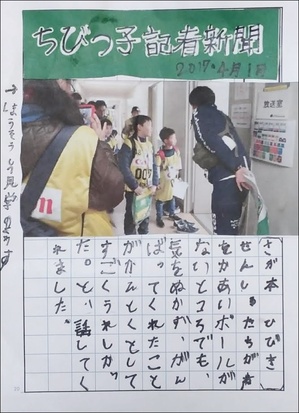 ちびっ子記者新聞
2017.4月1日
↑ほうそうの見学のようす
放送室
007
さが本 ひびき
せんしゅたちが声
をかけあいボールが
ないところでも、
気をぬかず、がん
ばってくれたこと
がかんとくとして
すごくうれしかっ
た。と、話してく
れました。